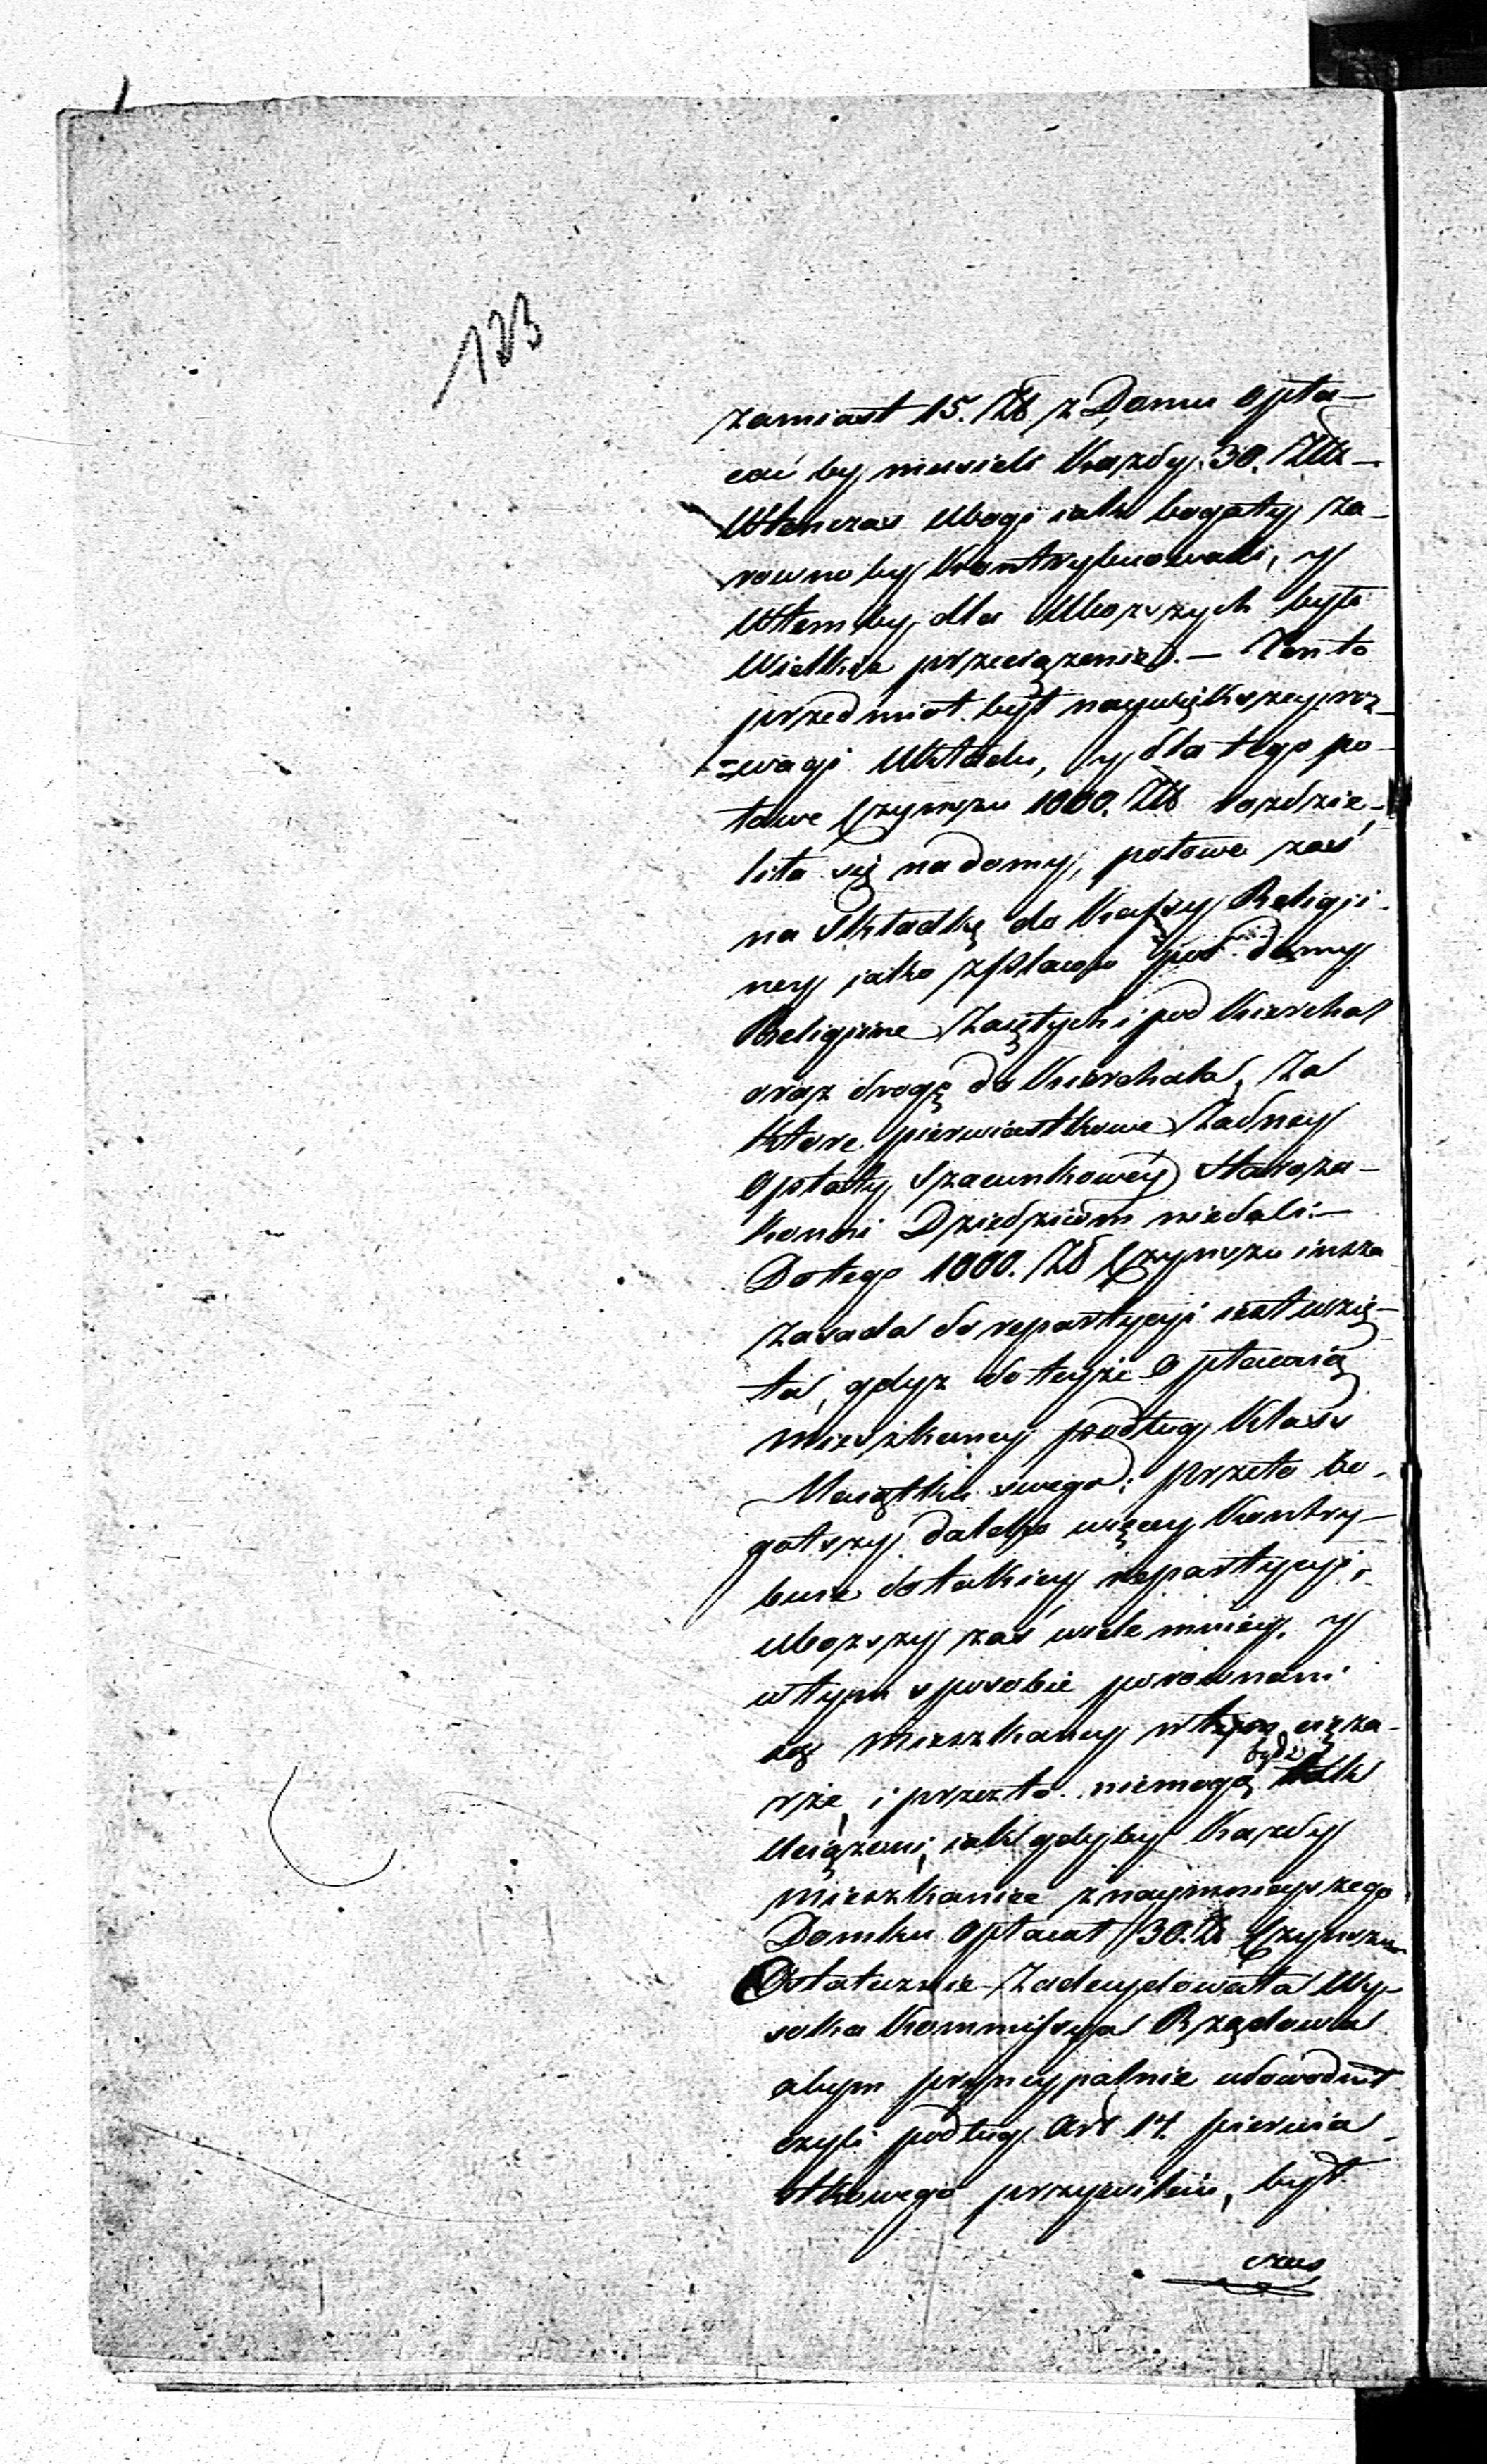 123
zamiast 15. Zł z Domu opła-
cać by musieli każdy 30. Złł-
Wtenczas Ubogi iak bogaty za-
rowno by kontrybuowali, y
Wtem by dla Uboższych było
Wielkie przeciążenie. - Ten to
przedmiot był naywiększey roz-
=wagi Układu, y dla tego po-
łowe Czynszu 1000. Zł rozdzie-
liła się na domy, połowe zaś
na Składkę do Kassy Religii-
ney jako z placow pod domy
Religiine Zaiętych i pod Kierchol
oraz drogę do Kierchola, Za
które pierwiastkowe Żadney
Opłaty Szacunkowey Staroza-
konni Dziedzicom niedali:-
Dotego 1000. Zł Czynszu insza
zasada do repartycyi iest wzię-
ta, gdyż do teyże Opłacaią
mieszkancy podług Klass
Maiątku swego; przeto bo-
gatszy daleko więcey kontry-
buie do takiey repartycyi,
uboższy zaś wiele mniey, y
w tym sposobie porownani
są Mieszkancy w tym cięża-
rze, i przezto niemogą bydź tak
Uciążeni, iak gdyby każdy
mieszkaniec z naymnieyszego
Domku Opłacał 30. Zł Czynszu
Ostatecznie Zadecydowała Wy-
soka Kommissya Rządowa
abym pryncypalnie udowodnił
czyli podług Art. 14. pierwia-
stkowego przywileiu, był